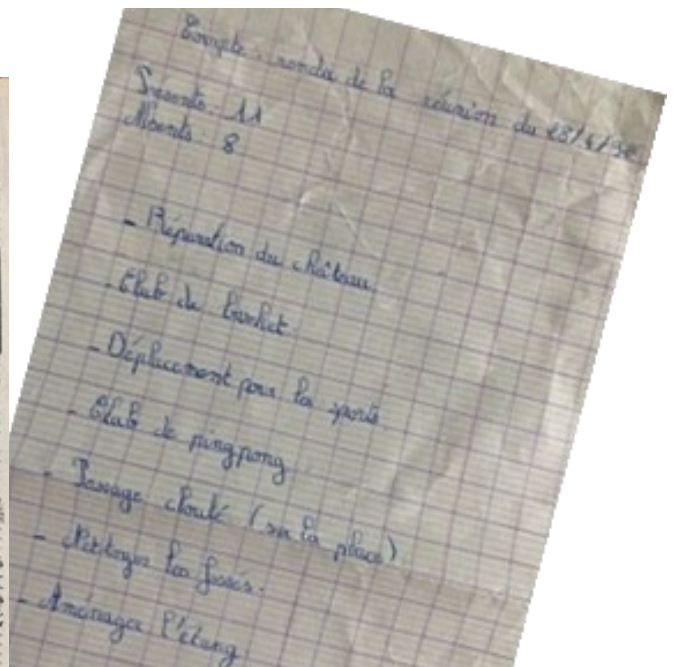 Compte-rendu de la réunion du 28/4/90
Présents : 11
Absents : 8
- Réparation du château
- Club de basket
- Déplacement pour les sports
- Club de pingpong
- Passage clouté (sur la place)
- Nettoyer les fossés.
- Aménager l'étang.